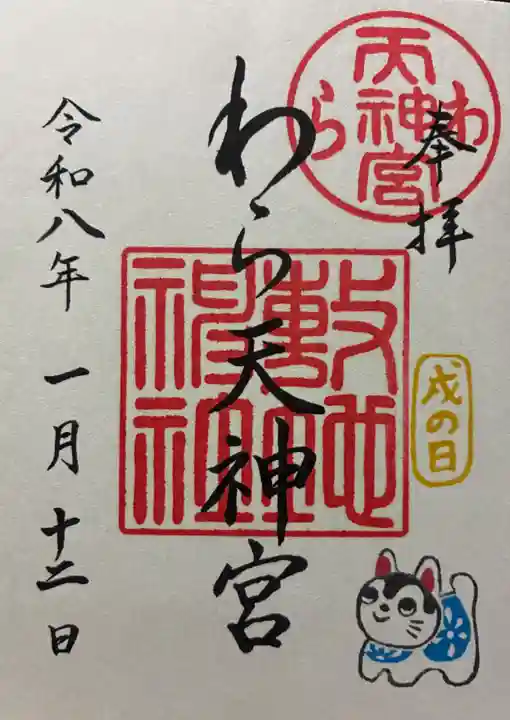 奉拝
わら天神宮
わら天神宮
敷地神社
戌の日
令和八年 一月 十二日